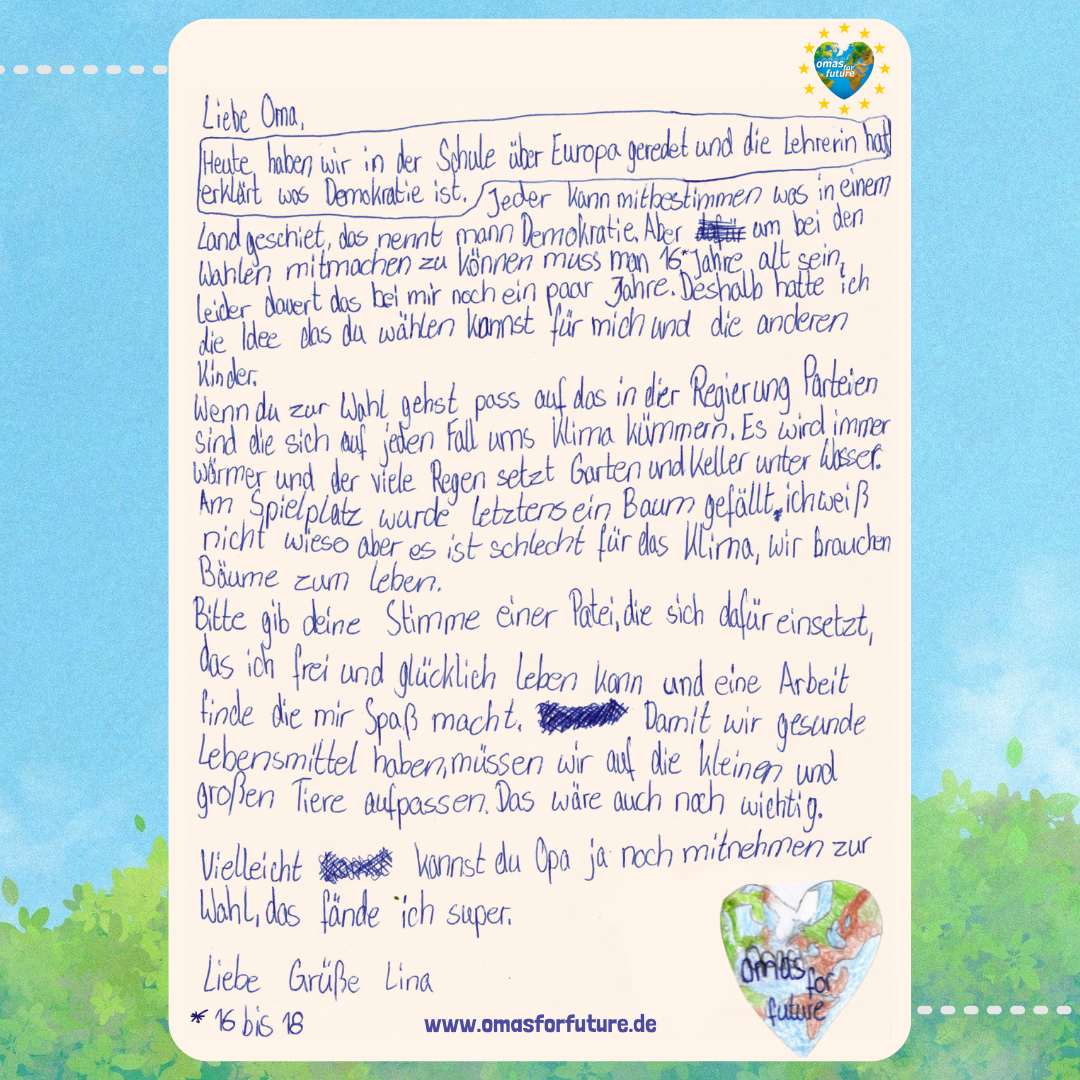 omas for future
Liebe Oma,
Heute haben wir in der Schule über Europa geredet und die Lehrerin hat
erklärt was Demokratie ist. Jeder kann mitbestimmen was in einem
Land geschiet, das nennt mann Demokratie. Aber dafür um bei den
Wahlen mitmachen zu können muss man 16* Jahre alt sein,
leider dauert das bei mir noch ein paar Jahre. Deshalb hatte ich
die Idee das du wählen kannst für mich und die anderen
Kinder.
Wenn du zur Wahl gehst pass auf das in der Regierung Parteien
sind die sich auf jeden Fall ums Klima kümmern. Es wird immer
wärmer und der viele Regen setzt Garten und Keller unter Wasser.
Am Spielplatz wurde letztens ein Baum gefällt, ich weiß
nicht wieso aber es ist schlecht für das Klima, wir brauchen
Bäume zum leben.
Bitte gib deine Stimme einer Patei, die sich dafür einsetzt,
das ich frei und glücklich leben kann und eine Arbeit
finde die mir Spaß macht. Damit wir gesunde
Lebensmittel haben, müssen wir auf die kleinen und
großen Tiere aufpassen. Das wäre auch noch wichtig.
Vielleicht kannst du Opa ja noch mitnehmen zur
Wahl, das fände ich super.
Liebe Grüße Lina
* 16 bis 18
www.omasforfuture.de
omas for future